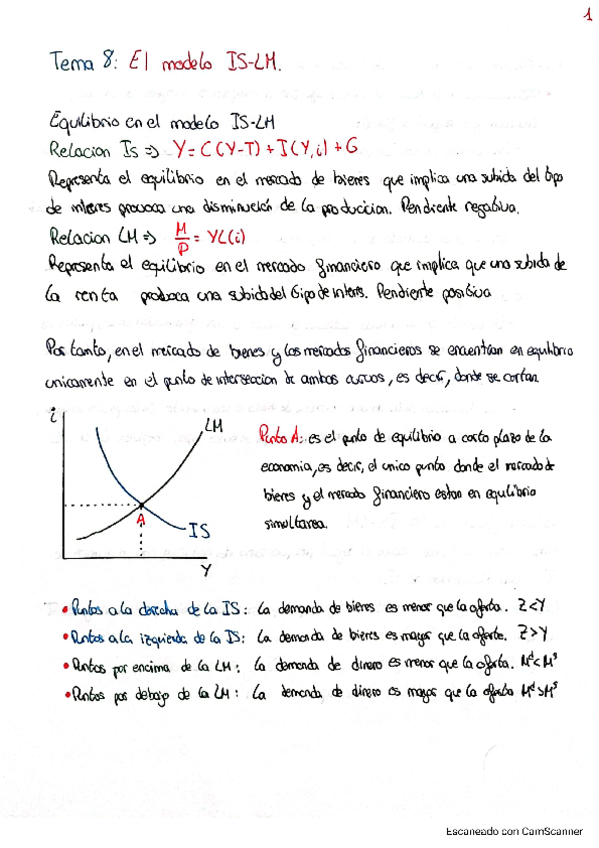 1
Tema 8: El modelo IS-LM.
Equilibrio en el modelo IS-LM
Relacion Is => Y = C(Y-T) + I(Y,i) + G
Representa el equilibrio en el mercado de bienes que implica una subida del tipo
de interes provoca una disminución de la produccion. Pendiente negativa.
Relacion LM => M/P = YL(i)
Representa el equilibrio en el mercado financiero que implica que una subida de
la renta produzca una subida del tipo de interes. Pendiente positiva
Por tanto, en el mercado de bienes y los mercados financieros se encuentran en equilibrio
unicamente en el punto de interseccion de ambas curvas, es decir, donde se cortan.
i
LM
A
IS
Y
Punto A: es el punto de equilibrio a corto plazo de la
economia, es decir, el unico punto donde el mercado de
bienes y el mercado financiero estan en equilibrio
simultanea.
• Puntos a la derecha de la IS: la demanda de bienes es menor que la oferta. Z<Y
• Puntos a la izquierda de la IS: la demanda de bienes es mayor que la oferta. Z>Y
• Puntos por encima de la LM: la demanda de dinero es menor que la oferta. Mᵈ<Mˢ
• Puntos por debajo de la LM: la demanda de dinero es mayor que la oferta Mᵈ>Mˢ
Escaneado con CamScanner